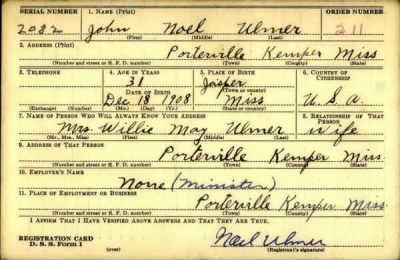 SERIAL NUMBER 1. NAME (Print) ORDER NUMBER
2082 John Noel Ulmer 211
(First) (Middle) (Last)
2. ADDRESS (Print)
Porterville Kemper Miss
(Number and street or R. F. D. number) (Town) (County) (State)
3. TELEPHONE 4. AGE IN YEARS 5. PLACE OF BIRTH 6. COUNTRY OF CITIZENSHIP
31 Jasper
DATE OF BIRTH (Town or county)
Dec 18 1908 Miss U.S.A.
(Exchange) (Number) (Mo.) (Day) (Yr.) (State or country)
7. NAME OF PERSON WHO WILL ALWAYS KNOW YOUR ADDRESS 8. RELATIONSHIP OF THAT PERSON
Mrs. Willie May Ulmer wife
(Mr., Mrs., Miss) (First) (Middle) (Last)
9. ADDRESS OF THAT PERSON
Porterville Kemper Miss.
(Number and street or R. F. D. number) (Town) (County) (State)
10. EMPLOYER'S NAME
None (Minister)
11. PLACE OF EMPLOYMENT OR BUSINESS
Porterville Kemper Miss.
(Number and street or R. F. D. number) (Town) (County) (State)
I AFFIRM THAT I HAVE VERIFIED ABOVE ANSWERS AND THAT THEY ARE TRUE.
REGISTRATION CARD
D. S. S. Form 1 (over) Noel Ulmer
(Registrant's signature)